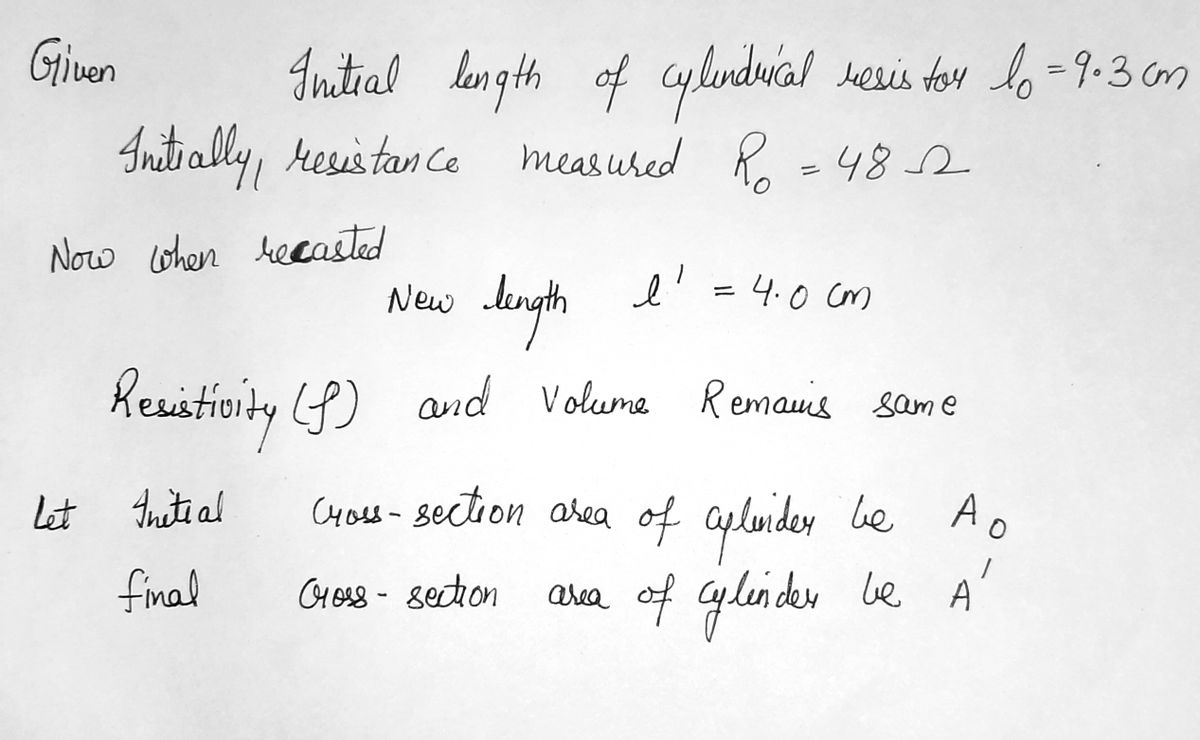 Given Initial length of cylindrical resistor l₀ = 9.3 cm
Initially, resistance measured R₀ = 48 Ω
Now when recasted
New length l' = 4.0 cm
Resistivity (ρ) and Volume Remains same
Let Initial Cross-section area of cylinder be A₀
final Cross-section area of cylinder be A'